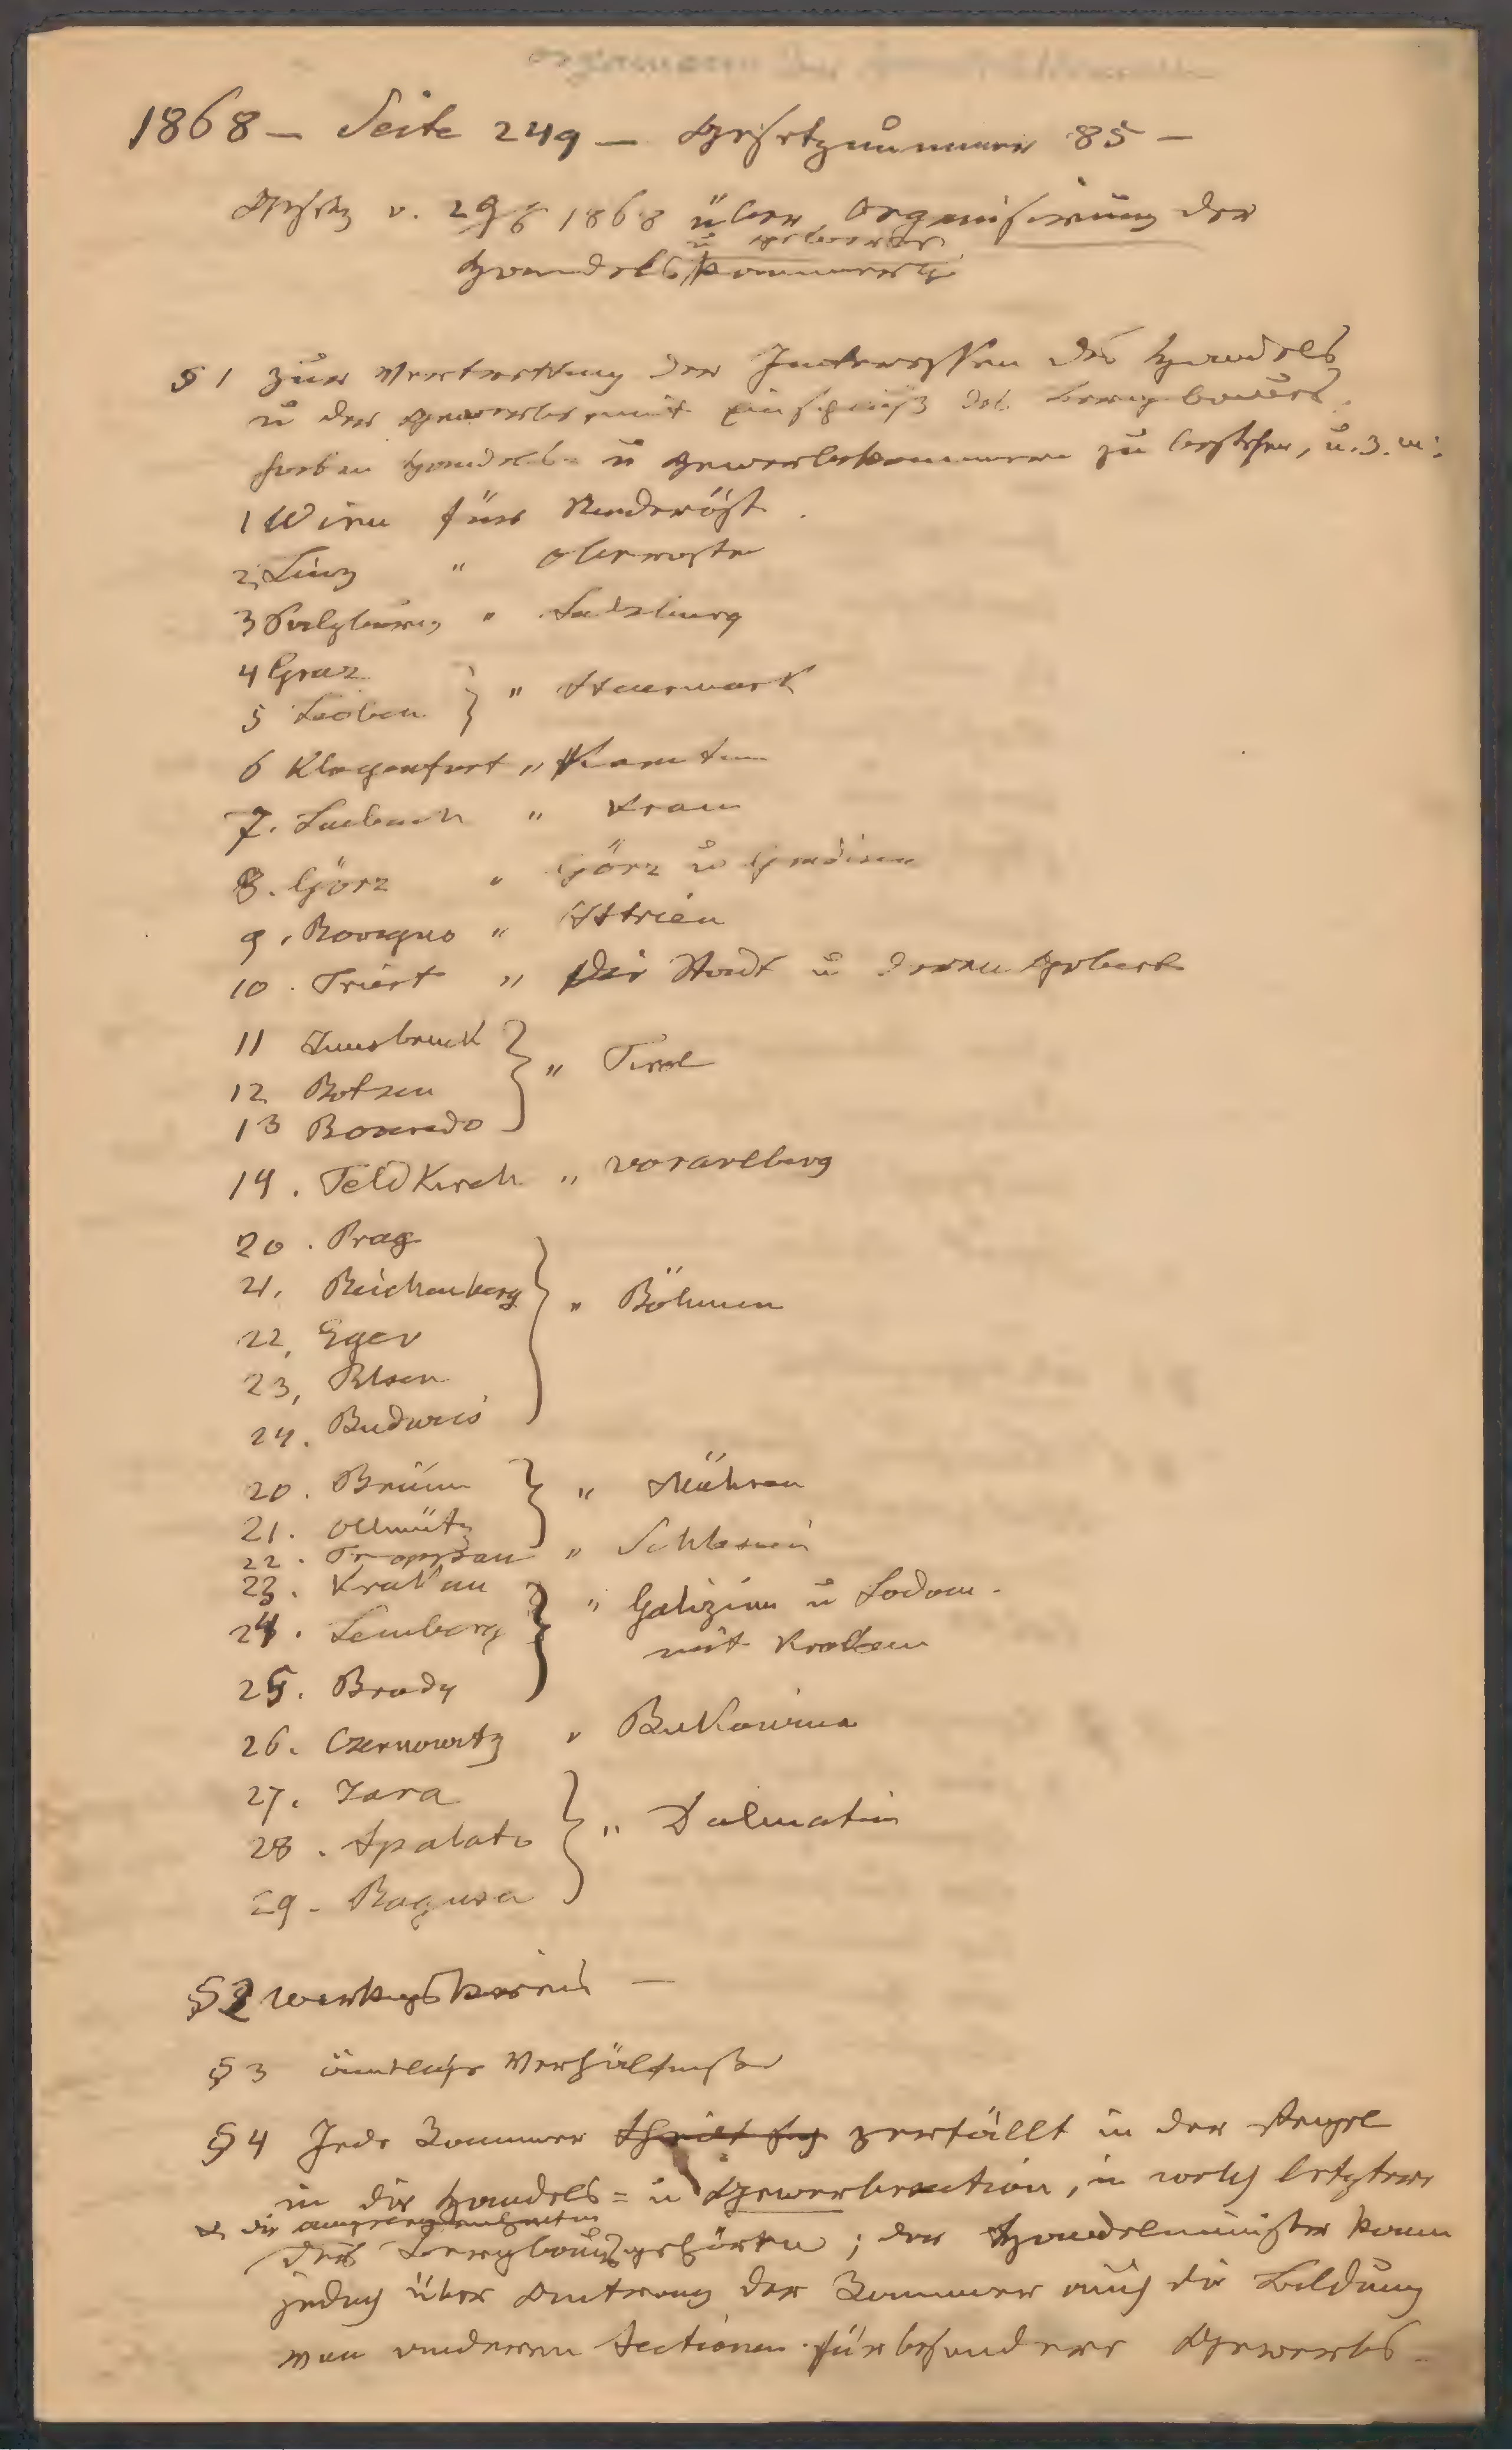 1868 – Seite 249 – Gesetznummer 85 –
Gesetz v. 29/6 1868 über Organisirung der
u Gewerbe
Handelskammern
§ 1 Zur Vertrettung der Interessen des Handels
u der Gewerbe mit Einschluß des Bergbaues
haben Handels- u Gewerbekammern zu bestehen, u. z. in:
1 Wien für Niederöst.
2, Linz " Oberöster
3 Salzburg " Salzburg
4 Graz
5 Leoben } " Steiermark
6 Klagenfurt " Kärnten
7. Laibach " Krain
8. Görz " Görz u Gradisca
9. Rovigno " Istrien
10. Triest " Die Stadt u deren Gebiet
11 Innsbruck
12 Botzen } " Tirol
13 Roveredo
14. Feldkirch " Vorarlberg
20. Prag
21. Reichenberg } " Böhmen
22, Eger
23, Pilsen
24. Budweis
20. Brünn } " Mähren
21. Ollmütz
22. Troppau " Schlesien
23. Krakau } " Galizien u Lodom.
24. Lemberg mit Krakau
25. Brody
26. Czernowitz " Bukowina
27. Zara
28. Spalato } " Dalmatien
29. Ragusa
§ 2 Wirkungskreis –
§ 3 ämtliche Verhältnisse
§ 4 Jede Kammer zerfällt in der Regel
in die Handels= u Gewerbesection, in welch letztere
die Angelegenheiten
des Bergbaues gehören; der Handelsminister kann
jedoch über Antrag der Kammer auch die Bildung
von anderen Sectionen für besondere Gewerbs-